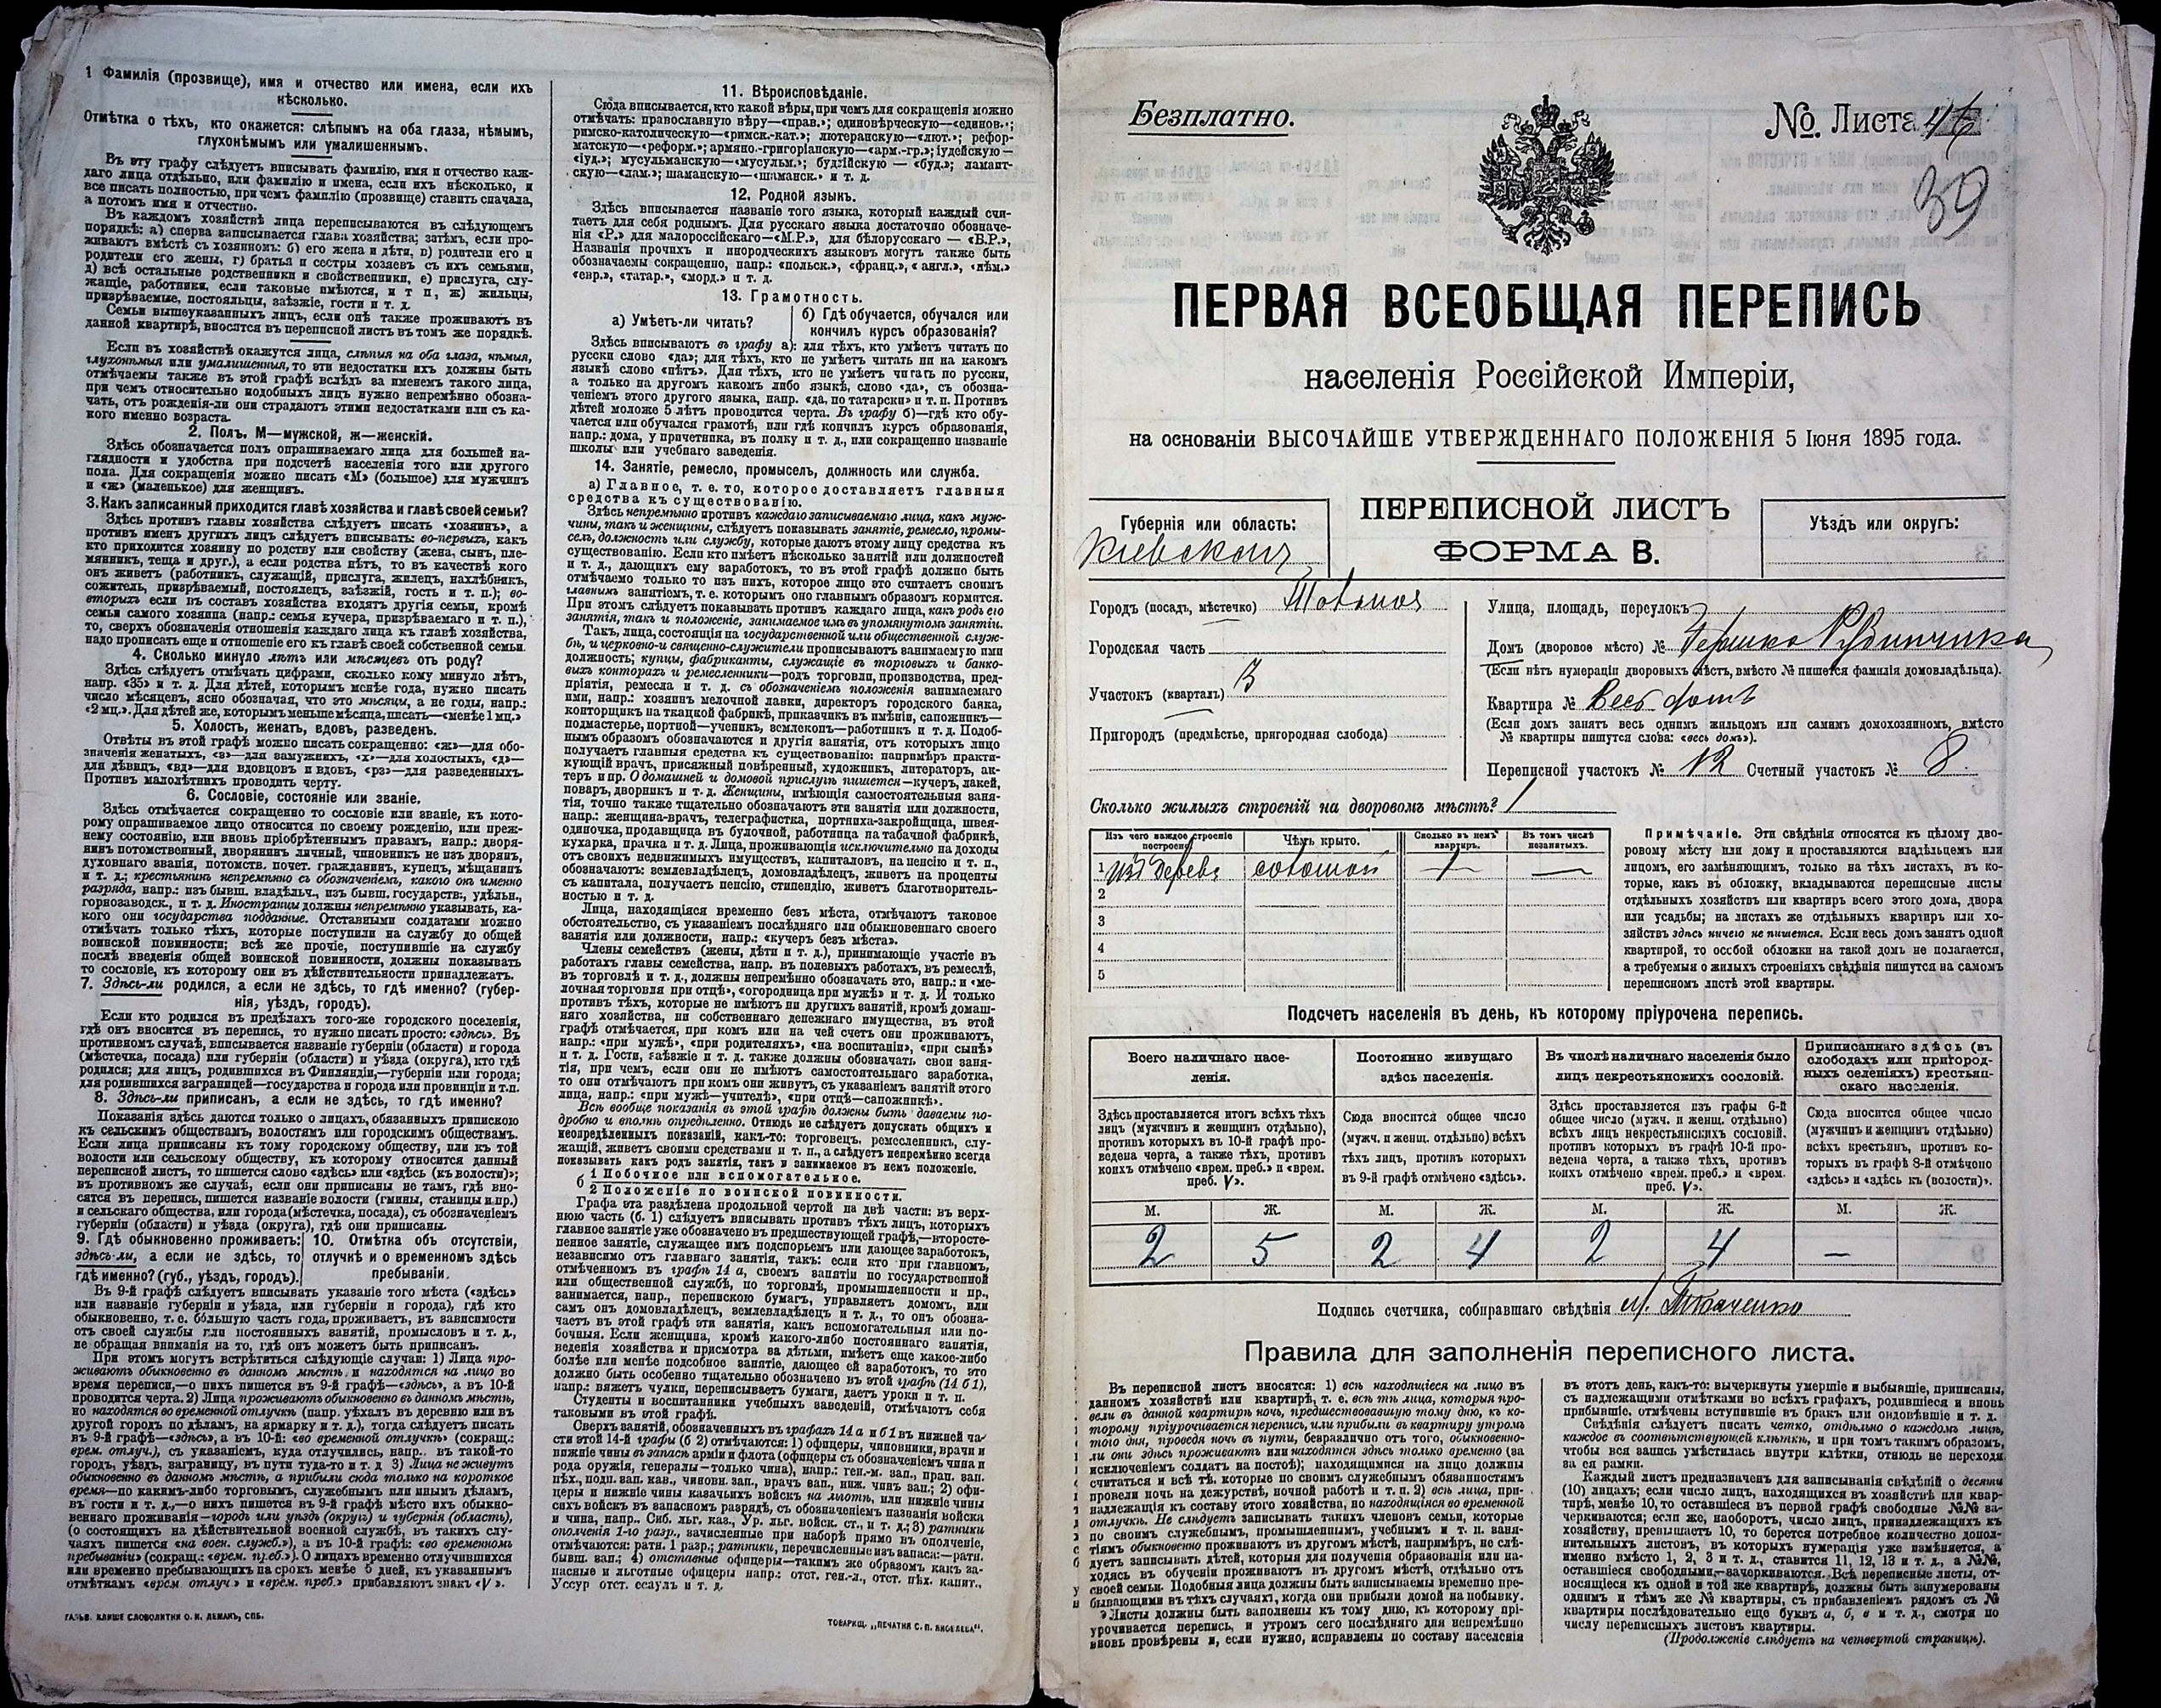 1 Фамилія (прозвище), имя и отчество или имена, если ихъ
нѣсколько.
Отмѣтка о тѣхъ, кто окажется: слѣпымъ на оба глаза, нѣмымъ,
глухонѣмымъ или умалишеннымъ.
Въ эту графу слѣдуетъ вписывать фамилію, имя и отчество каж-
даго лица отдѣльно, или фамилію и имена, если ихъ нѣсколько, и
все писать полностью, при чемъ фамилію (прозвище) ставить сначала,
а потомъ имя и отчество.
Въ каждомъ хозяйствѣ лица переписываются въ слѣдующемъ
порядкѣ: а) сперва записывается глава хозяйства; затѣмъ, если про-
живаютъ вмѣстѣ съ хозяиномъ: б) его жена и дѣти, в) родители его и
родители его жены, г) братья и сестры хозяевъ съ ихъ семьями,
д) всѣ остальные родственники и свойственники, е) прислуга, слу-
жащіе, работники, если таковые имѣются, и т п, ж) жильцы,
призрѣваемые, постояльцы, заѣзжіе, гости и т. д.
Семьи вышеуказанныхъ лицъ, если онѣ также проживаютъ въ
данной квартирѣ, вносятся въ переписной листъ въ томъ же порядкѣ.
Если въ хозяйствѣ окажутся лица, слѣпыя на оба глаза, нѣмыя,
глухонѣмыя или умалишенныя, то эти недостатки ихъ должны быть
отмѣчаемы также въ этой графѣ вслѣдъ за именемъ такого лица,
при чемъ относительно подобныхъ лицъ нужно непремѣнно обозна-
чать, отъ рожденія-ли они страдаютъ этими недостатками или съ ка-
кого именно возраста.
2. Полъ. М—мужской, ж—женскій.
Здѣсь обозначается полъ опрашиваемаго лица для большей на-
глядности и удобства при подсчетѣ населенія того или другого
пола. Для сокращенія можно писать «М» (большое) для мужчинъ
и «ж» (маленькое) для женщинъ.
3. Какъ записанный приходится главѣ хозяйства и главѣ своей семьи?
Здѣсь противъ главы хозяйства слѣдуетъ писать «хозяинъ», а
противъ именъ другихъ лицъ слѣдуетъ вписывать: во-первыхъ, какъ
кто приходится хозяину по родству или свойству (жена, сынъ, пле-
мянникъ, теща и друг.), а если родства нѣтъ, то въ качествѣ кого
онъ живетъ (работникъ, служащій, прислуга, жилецъ, нахлѣбникъ,
сожитель, призрѣваемый, постоялецъ, заѣзжій, гость и т. п.); во-
вторыхъ если въ составъ хозяйства входятъ другія семьи, кромѣ
семьи самого хозяина (напр.: семья кучера, призрѣваемаго и т. п.),
то, сверхъ обозначенія отношенія каждаго лица къ главѣ хозяйства,
надо прописать еще и отношеніе его къ главѣ своей собственной семьи.
4. Сколько минуло лѣтъ или мѣсяцевъ отъ роду?
Здѣсь слѣдуетъ отмѣчать цифрами, сколько кому минуло лѣтъ,
напр. «35» и т. д. Для дѣтей, которымъ менѣе года, нужно писать
число мѣсяцевъ, ясно обозначая, что это мѣсяцы, а не годы, напр.:
«2 мц.». Для дѣтей же, которымъ меньше мѣсяца, писать—«менѣе 1 мц.»
5. Холостъ, женатъ, вдовъ, разведенъ.
Отвѣты въ этой графѣ можно писать сокращенно: «ж»—для обо-
значенія женатыхъ, «з»—для замужнихъ, «х»—для холостыхъ, «д»—
для дѣвицъ, «вд»—для вдовцовъ и вдовъ, «рз»—для разведенныхъ.
Противъ малолѣтнихъ проводить черту.
6. Сословіе, состояніе или званіе.
Здѣсь отмѣчается сокращенно то сословіе или званіе, къ кото-
рому опрашиваемое лицо относится по своему рожденію, или преж-
нему состоянію, или вновь пріобрѣтеннымъ правамъ, напр.: дворя-
нинъ потомственный, дворянинъ личный, чиновникъ не изъ дворянъ,
духовнаго званія, потомств. почет. гражданинъ, купецъ, мѣщанинъ
и т. д.; крестьянинъ непремѣнно съ обозначеніемъ, какого онъ именно
разряда, напр.: изъ бывш. владѣльч., изъ бывш. государств., удѣльн.,
горнозаводск., и т. д. Иностранцы должны непремѣнно указывать, ка-
кого они государства подданные. Отставными солдатами можно
отмѣчать только тѣхъ, которые поступили на службу до общей
воинской повинности; всѣ же прочіе, поступившіе на службу
послѣ введенія общей воинской повинности, должны показывать
то сословіе, къ которому они въ дѣйствительности принадлежатъ.
7. Здѣсь-ли родился, а если не здѣсь, то гдѣ именно? (губер-
нія, уѣздъ, городъ).
Если кто родился въ предѣлахъ того-же городского поселенія,
гдѣ онъ вносится въ перепись, то нужно писать просто: «здѣсь». Въ
противномъ случаѣ, вписывается названіе губерніи (области) и города
(мѣстечка, посада) или губерніи (области) и уѣзда (округа), кто гдѣ
родился; для лицъ, родившихся въ Финляндіи,—губерніи или города;
для родившихся заграницей—государства и города или провинціи и т.п.
8. Здѣсь-ли приписанъ, а если не здѣсь, то гдѣ именно?
Показанія здѣсь даются только о лицахъ, обязанныхъ припискою
къ сельскимъ обществамъ, волостямъ или городскимъ обществамъ.
Если лица приписаны къ тому городскому обществу, или къ той
волости или сельскому обществу, къ которому относится данный
переписной листъ, то пишется слово «здѣсь» или «здѣсь (къ волости)»;
въ противномъ же случаѣ, если они приписаны не тамъ, гдѣ вно-
сятся въ перепись, пишется названіе волости (гмины, станицы и пр.)
и сельскаго общества, или города (мѣстечка, посада), съ обозначеніемъ
губерніи (области) и уѣзда (округа), гдѣ они приписаны.
9. Гдѣ обыкновенно проживаетъ:
здѣсь-ли, а если не здѣсь, то
гдѣ именно? (губ., уѣздъ, городъ).
10. Отмѣтка объ отсутствіи,
отлучкѣ и о временномъ здѣсь
пребываніи.
Въ 9-й графѣ слѣдуетъ вписывать указаніе того мѣста («здѣсь»
или названіе губерніи и уѣзда, или губерніи и города), гдѣ кто
обыкновенно, т. е. бо́льшую часть года, проживаетъ, въ зависимости
отъ своей службы или постоянныхъ занятій, промысловъ и т. д.,
не обращая вниманія на то, гдѣ онъ можетъ быть приписанъ.
При этомъ могутъ встрѣтиться слѣдующіе случаи: 1) Лица про-
живаютъ обыкновенно въ данномъ мѣстѣ и находятся на лицо во
время переписи,—о нихъ пишется въ 9-й графѣ—«здѣсь», а въ 10-й
проводится черта. 2) Лица проживаютъ обыкновенно въ данномъ мѣстѣ,
но находятся во временной отлучкѣ (напр. уѣхалъ въ деревню или въ
другой городъ по дѣламъ, на ярмарку и т. д.), тогда слѣдуетъ писать
въ 9-й графѣ—«здѣсь», а въ 10-й: «во временной отлучкѣ» (сокращ.:
врем. отлуч.), съ указаніемъ, куда отлучились, напр.. въ такой-то
городъ, уѣздъ, заграницу, въ пути туда-то и т. д 3) Лица не живутъ
обыкновенно въ данномъ мѣстѣ, а прибыли сюда только на короткое
время—по какимъ-либо торговымъ, служебнымъ или инымъ дѣламъ,
въ гости и т. д.,—о нихъ пишется въ 9-й графѣ мѣсто ихъ обыкно-
веннаго проживанія—городъ или уѣздъ (округъ) и губернія (область),
(о состоящихъ на дѣйствительной военной службѣ, въ такихъ слу-
чаяхъ пишется «на воен. служб.»), а въ 10-й графѣ: «во временномъ
пребываніи» (сокращ.: «врем. преб.»). О лицахъ временно отлучившихся
или временно пребывающихъ на срокъ менѣе 5 дней, къ указаннымъ
отмѣткамъ «врем. отлуч.» и «врем. преб.» прибавляютъ знакъ «V».
ГАЛЬВ. КЛИШЕ СЛОВОЛИТНИ О. И. ЛЕМАНЪ, СПБ.
11. Вѣроисповѣданіе.
Сюда вписывается, кто какой вѣры, при чемъ для сокращенія можно
отмѣчать: православную вѣру—«прав.»; единовѣрческую—«единов.»;
римско-католическую—«римск.-кат.»; лютеранскую—«лют.»; рефор-
матскую—«реформ.»; армяно-григоріанскую—«арм.-гр.»; іудейскую—
«іуд.»; мусульманскую—«мусульм.»; буддійскую — «буд.»; ламаит-
скую—«лам.»; шаманскую—«шаманск.» и т. д.
12. Родной языкъ.
Здѣсь вписывается названіе того языка, который каждый счи-
таетъ для себя роднымъ. Для русскаго языка достаточно обозначе-
нія «Р.» для малороссійскаго—«М.Р.», для бѣлорусскаго — «Б.Р.»,
Названія прочихъ и инородческихъ языковъ могутъ также быть
обозначаемы сокращенно, напр.: «польск.», «франц.», « англ.», «нѣм.»
«евр.», «татар.», «морд.» и т. д.
13. Грамотность.
а) Умѣетъ-ли читать?
б) Гдѣ обучается, обучался или
кончилъ курсъ образованія?
Здѣсь вписываютъ въ графу а): для тѣхъ, кто умѣетъ читать по
русски слово «да»; для тѣхъ, кто не умѣетъ читать ни на какомъ
языкѣ слово «нѣтъ». Для тѣхъ, кто не умѣетъ читать по русски,
а только на другомъ какомъ либо языкѣ, слово «да», съ обозна-
ченіемъ этого другого языка, напр. «да, по татарски» и т. п. Противъ
дѣтей моложе 5 лѣтъ проводится черта. Въ графу б)—гдѣ кто обу-
чается или обучался грамотѣ, или гдѣ кончилъ курсъ образованія,
напр.: дома, у причетника, въ полку и т. д., или сокращенно названіе
школы или учебнаго заведенія.
14. Занятіе, ремесло, промыселъ, должность или служба.
а) Главное, т. е. то, которое доставляетъ главныя
средства къ существованію.
Здѣсь непремѣнно противъ каждаго записываемаго лица, какъ муж-
чины, такъ и женщины, слѣдуетъ показывать занятіе, ремесло, промы-
селъ, должность или службу, которые даютъ этому лицу средства къ
существованію. Если кто имѣетъ нѣсколько занятій или должностей
и т. д., дающихъ ему заработокъ, то въ этой графѣ должно быть
отмѣчаемо только то изъ нихъ, которое лицо это считаетъ своимъ
главнымъ занятіемъ, т. е. которымъ оно главнымъ образомъ кормится.
При этомъ слѣдуетъ показывать противъ каждаго лица, какъ родъ его
занятія, такъ и положеніе, занимаемое имъ въ упомянутомъ занятіи.
Такъ, лица, состоящія на государственной или общественной служ-
бѣ, и церковно-и священно-служители прописываютъ занимаемую ими
должность; купцы, фабриканты, служащіе въ торговыхъ и банко-
выхъ конторахъ и ремесленники—родъ торговли, производства, пред-
пріятія, ремесла и т. д. съ обозначеніемъ положенія занимаемаго
ими, напр.: хозяинъ мелочной лавки, директоръ городского банка,
конторщикъ на ткацкой фабрикѣ, приказчикъ въ имѣніи, сапожникъ—
подмастерье, портной—ученикъ, землекопъ—работникъ и т. д. Подоб-
нымъ образомъ обозначаются и другія занятія, отъ которыхъ лицо
получаетъ главныя средства къ существованію: напримѣръ практи-
кующій врачъ, присяжный повѣренный, художникъ, литераторъ, ак-
теръ и пр. О домашней и домовой прислугѣ пишется—кучеръ, лакей,
поваръ, дворникъ и т. д. Женщины, имѣющія самостоятельныя заня-
тія, точно также тщательно обозначаютъ эти занятія или должности,
напр.: женщина-врачъ, телеграфистка, портниха-закройщица, швея-
одиночка, продавщица въ булочной, работница на табачной фабрикѣ,
кухарка, прачка и т. д. Лица, проживающія исключительно на доходы
отъ своихъ недвижимыхъ имуществъ, капиталовъ, на пенсію и т. п.,
обозначаютъ: землевладѣлецъ, домовладѣлецъ, живетъ на проценты
съ капитала, получаетъ пенсію, стипендію, живетъ благотворитель-
ностью и т. д.
Лица, находящіяся временно безъ мѣста, отмѣчаютъ таковое
обстоятельство, съ указаніемъ послѣдняго или обыкновеннаго своего
занятія или должности, напр.: «кучеръ безъ мѣста».
Члены семействъ (жены, дѣти и т. д.), принимающіе участіе въ
работахъ главы семейства, напр. въ полевыхъ работахъ, въ ремеслѣ,
въ торговлѣ и т. д., должны непремѣнно обозначать это, напр.: и «ме-
лочная торговля при отцѣ», «огородница при мужѣ» и т. д. И только
противъ тѣхъ, которые не имѣютъ ни другихъ занятій, кромѣ домаш-
няго хозяйства, ни собственнаго денежнаго имущества, въ этой
графѣ отмѣчается, при комъ или на чей счетъ они проживаютъ,
напр.: «при мужѣ», «при родителяхъ», «на воспитаніи», «при сынѣ»
и т. д. Гости, заѣзжіе и т. д. также должны обозначать свои заня-
тія, при чемъ, если они не имѣютъ самостоятельнаго заработка,
то они отмѣчаютъ при комъ они живутъ, съ указаніемъ занятій этого
лица, напр.: «при мужѣ—учителѣ», «при отцѣ—сапожникѣ».
Всѣ вообще показанія въ этой графѣ должны быть даваемы по-
дробно и вполнѣ опредѣленно. Отнюдь не слѣдуетъ допускать общихъ и
неопредѣленныхъ показаній, какъ-то: торговецъ, ремесленникъ, слу-
жащій, живетъ своими средствами и т. п., а слѣдуетъ непремѣнно всегда
показывать какъ родъ занятія, такъ и занимаемое въ немъ положеніе.
б 1 Побочное или вспомогательное.
2 Положеніе по воинской повинности.
Графа эта раздѣлена продольной чертой на двѣ части: въ верх-
нюю часть (б. 1) слѣдуетъ вписывать противъ тѣхъ лицъ, которыхъ
главное занятіе уже обозначено въ предшествующей графѣ,—второсте-
пенное занятіе, служащее имъ подспорьемъ или дающее заработокъ,
независимо отъ главнаго занятія, такъ: если кто при главномъ,
отмѣченномъ въ графѣ 14 а, своемъ занятіи по государственной
или общественной службѣ, по торговлѣ, промышленности и пр.,
занимается, напр., перепискою бумагъ, управляетъ домомъ, или
самъ онъ домовладѣлецъ, землевладѣлецъ и т. д., то онъ обозна-
чаетъ въ этой графѣ эти занятія, какъ вспомогательныя или по-
бочныя. Если женщина, кромѣ какого-либо постояннаго занятія,
веденія хозяйства и присмотра за дѣтьми, имѣетъ еще какое-либо
болѣе или менѣе подсобное занятіе, дающее ей заработокъ, то это
должно быть особенно тщательно обозначено въ этой графѣ (14 б 1),
напр.: вяжетъ чулки, переписываетъ бумаги, даетъ уроки и т. п.
Студенты и воспитанники учебныхъ заведеній, отмѣчаютъ себя
таковыми въ этой графѣ.
Сверхъ занятій, обозначенныхъ въ графахъ 14 а и б 1 въ нижней ча-
сти этой 14-й графы (б 2) отмѣчаются: 1) офицеры, чиновники, врачи и
нижніе чины въ запасѣ арміи и флота (офицеры съ обозначеніемъ чина и
рода оружія, генералы—только чина), напр.: ген-м. зап., прап. зап.
пѣх., подп. зап. кав., чиновн. зап., врачъ зап., ниж. чинъ зап.; 2) офи-
церы и нижніе чины казачьихъ войскъ на льготѣ, или нижніе чины
сихъ войскъ въ запасномъ разрядѣ, съ обозначеніемъ названія войска
и чина, напр.. Сиб. льг. каз., Ур. льг. войск. ст., и т. д.; 3) ратники
ополченія 1-го разр., зачисленные при наборѣ прямо въ ополченіе,
отмѣчаются: ратн. 1 разр.; ратники, перечисленные изъ запаса:—ратн.
бывш. зап.; 4) отставные офицеры—такимъ же образомъ какъ за-
пасные и льготные офицеры напр.: отст. ген.-л., отст. пѣх. капит.,
Уссур отст. есаулъ и т. д.
ТОВАРИЩ. „ПЕЧАТНЯ С. П. ЯКОВЛЕВА“.
Безплатно.
№. Листа 46
39
ПЕРВАЯ ВСЕОБЩАЯ ПЕРЕПИСЬ
населенія Россійской Имперіи,
на основаніи ВЫСОЧАЙШЕ УТВЕРЖДЕННАГО ПОЛОЖЕНІЯ 5 Іюня 1895 года.
Губернія или область:
Кіевская
ПЕРЕПИСНОЙ ЛИСТЪ
ФОРМА В.
Уѣздъ или округъ:
Городъ (посадъ, мѣстечко)
Городская часть
Участокъ (кварталъ) 3
Пригородъ (предмѣстье, пригородная слобода)
Улица, площадь, переулокъ
Домъ (дворовое мѣсто) № Гершко Рубинчика
(Если нѣтъ нумераціи дворовыхъ мѣстъ, вмѣсто № пишется фамилія домовладѣльца).
Квартира № Весь домъ
(Если домъ занятъ весь однимъ жильцомъ или самимъ домохозяиномъ, вмѣсто
№ квартиры пишутся слова: «весь домъ»).
Переписной участокъ № 12 Счетный участокъ № 8
Сколько жилыхъ строеній на дворовомъ мѣстѣ? 1
Изъ чего каждое строеніе построено.
Чѣмъ крыто.
Сколько въ немъ квартиръ.
Въ томъ числѣ незанятыхъ.
1 изъ дерева соломой 1 —
2
3
4
5
Примѣчаніе. Эти свѣдѣнія относятся къ цѣлому дво-
ровому мѣсту или дому и проставляются владѣльцемъ или
лицомъ, его замѣняющимъ, только на тѣхъ листахъ, въ ко-
торые, какъ въ обложку, вкладываются переписные листы
отдѣльныхъ хозяйствъ или квартиръ всего этого дома, двора
или усадьбы; на листахъ же отдѣльныхъ квартиръ или хо-
зяйствъ здѣсь ничего не пишется. Если весь домъ занятъ одной
квартирой, то особой обложки на такой домъ не полагается,
а требуемыя о жилыхъ строеніяхъ свѣдѣнія пишутся на самомъ
переписномъ листѣ этой квартиры.
Подсчетъ населенія въ день, къ которому пріурочена перепись.
Всего наличнаго насе-
ленія.
Здѣсь проставляется итогъ всѣхъ тѣхъ
лицъ (мужчинъ и женщинъ отдѣльно),
противъ которыхъ въ 10-й графѣ про-
ведена черта, а также тѣхъ, противъ
коихъ отмѣчено «врем. преб.» и «врем.
преб. V».
Постоянно живущаго
здѣсь населенія.
Сюда вносится общее число
(мужч. и женщ. отдѣльно) всѣхъ
тѣхъ лицъ, противъ которыхъ
въ 9-й графѣ отмѣчено «здѣсь».
Въ числѣ наличнаго населенія было
лицъ некрестьянскихъ сословій.
Здѣсь проставляется изъ графы 6-й
общее число (мужч. и женщ. отдѣльно)
всѣхъ лицъ некрестьянскихъ сословій,
противъ которыхъ въ графѣ 10-й про-
ведена черта, а также тѣхъ, противъ
коихъ отмѣчено «врем. преб.» и «врем.
преб. V».
Приписаннаго здѣсь (въ
слободахъ или пригород-
ныхъ селеніяхъ) крестьян-
скаго населенія.
Сюда вносится общее число
(мужчинъ и женщинъ отдѣльно)
всѣхъ крестьянъ, противъ ко-
торыхъ въ графѣ 8-й отмѣчено
«здѣсь» и «здѣсь къ (волости)».
М. Ж. М. Ж. М. Ж. М. Ж.
2 5 2 4 2 4 —
Подпись счетчика, собиравшаго свѣдѣнія Ткаченко
Правила для заполненія переписного листа.
Въ переписной листъ вносятся: 1) всѣ находящіеся на лицо въ
данномъ хозяйствѣ или квартирѣ, т. е. всѣ тѣ лица, которыя про-
вели въ данной квартирѣ ночь, предшествовавшую тому дню, къ ко-
торому пріурочивается перепись, или прибыли въ квартиру утромъ
того дня, проведя ночь въ пути, безразлично отъ того, обыкновенно-
ли они здѣсь проживаютъ или находятся здѣсь только временно (за
исключеніемъ солдатъ на постоѣ); находящимися на лицо должны
считаться и всѣ тѣ, которые по своимъ служебнымъ обязанностямъ
провели ночь на дежурствѣ, ночной работѣ и т. п. 2) всѣ лица, при-
надлежащія къ составу этого хозяйства, но находящіяся во временной
отлучкѣ. Не слѣдуетъ записывать такихъ членовъ семьи, которые
по своимъ служебнымъ, промышленнымъ, учебнымъ и т. п. заня-
тіямъ обыкновенно проживаютъ въ другомъ мѣстѣ, напримѣръ, не слѣ-
дуетъ записывать дѣтей, которыя для полученія образованія или на-
ходясь въ обученіи проживаютъ въ другомъ мѣстѣ, отдѣльно отъ
своей семьи. Подобныя лица должны быть записываемы временно пре-
бывающими въ тѣхъ случаяхъ, когда они прибыли домой на побывку.
Листы должны быть заполнены къ тому дню, къ которому прі-
урочивается перепись, и утромъ сего послѣдняго дня непремѣнно
вновь провѣрены и, если нужно, исправлены по составу населенія
въ этотъ день, какъ-то: вычеркнуты умершіе и выбывшіе, приписаны,
съ надлежащими отмѣтками во всѣхъ графахъ, родившіеся и вновь
прибывшіе, отмѣчены вступившіе въ бракъ или овдовѣвшіе и т. д.
Свѣдѣнія слѣдуетъ писать четко, отдѣльно о каждомъ лицѣ,
каждое въ соотвѣтствующей клѣткѣ, и при томъ такимъ образомъ,
чтобы вся запись умѣстилась внутри клѣтки, отнюдь не переходя
за ея рамки.
Каждый листъ предназначенъ для записыванія свѣдѣній о десяти
(10) лицахъ; если число лицъ, находящихся въ хозяйствѣ или квар-
тирѣ, менѣе 10, то оставшіеся въ первой графѣ свободные №№ за-
черкиваются; если же, наоборотъ, число лицъ, принадлежащихъ къ
хозяйству, превышаетъ 10, то берется потребное количество допол-
нительныхъ листовъ, въ которыхъ нумерація уже измѣняется, а
именно вмѣсто 1, 2, 3 и т. д., ставится 11, 12, 13 и т. д., а №№,
оставшіеся свободными,—зачеркиваются. Всѣ переписные листы, от-
носящіеся къ одной и той же квартирѣ, должны быть занумерованы
однимъ и тѣмъ же № квартиры, съ прибавленіемъ рядомъ съ №
квартиры послѣдовательно еще буквъ а, б, в и т. д., смотря по
числу переписныхъ листовъ квартиры.
(Продолженіе слѣдуетъ на четвертой страницѣ).